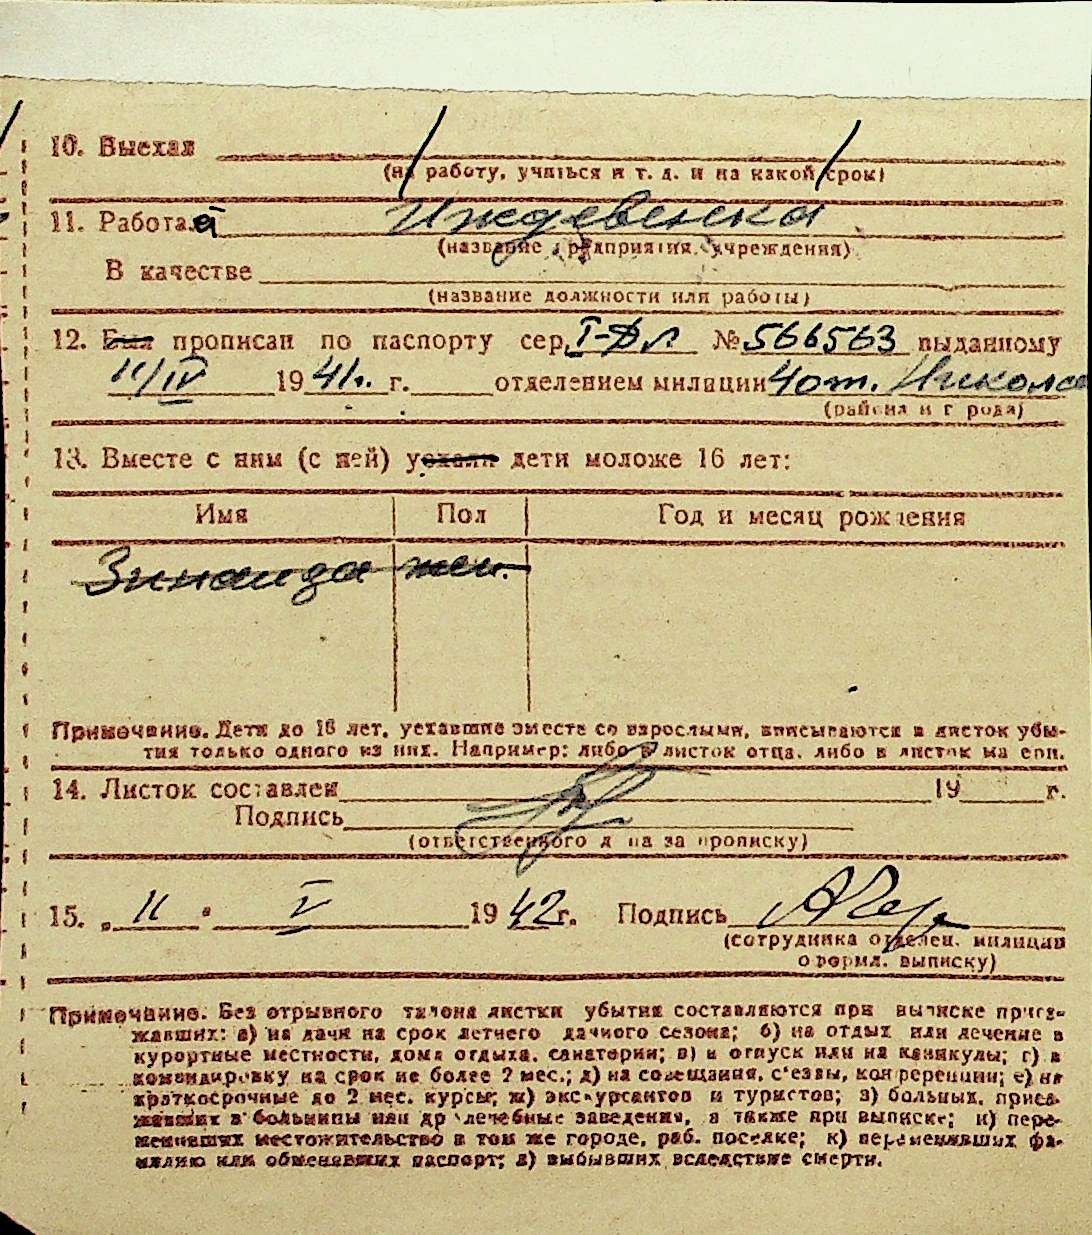 10. Выехал
(на работу, учиться и т. д. и на какой срок)
11. Работала Иждевенка
(название предприятия, учреждения)
В качестве
(название должности или работы)
12. Был прописан по паспорту сер. I-ДЛ № 566563 выданному
11/IV 1941г. г. отделением милиции 4 от. Николае
(района и города)
13. Вместе с ним (с ней) уехали дети моложе 16 лет:
Имя Пол Год и месяц рождения
Зинаида жен.
Примечание. Дети до 16 лет, уехавшие вместе со взрослыми, вписываются в листок убы-
тия только одного из них. Например: либо в листок отца, либо в листок матери.
14. Листок составлен 19 г.
Подпись
(ответственного лица за прописку)
15. „11" V 1942 г. Подпись
(сотрудника отделен. милиции
оформл. выписку)
Примечание. Без отрывного талона листки убытия составляются при выписке приез-
жавших: а) на дачи на срок летнего дачного сезона; б) на отдых или лечение в
курортные местности, дома отдыха, санатории; в) в отпуск или на каникулы; г) в
командировку на срок не более 2 мес.; д) на совещания, съезды, конференции; е) на
краткосрочные до 2 мес. курсы; ж) экскурсантов и туристов; з) больных, приез-
жавших в больницы или др. лечебные заведения, а также при выписке; и) пере-
менивших местожительство в том же городе, раб. поселке; к) переменивших фа-
милию или обменявших паспорт; л) выбывших вследствие смерти.